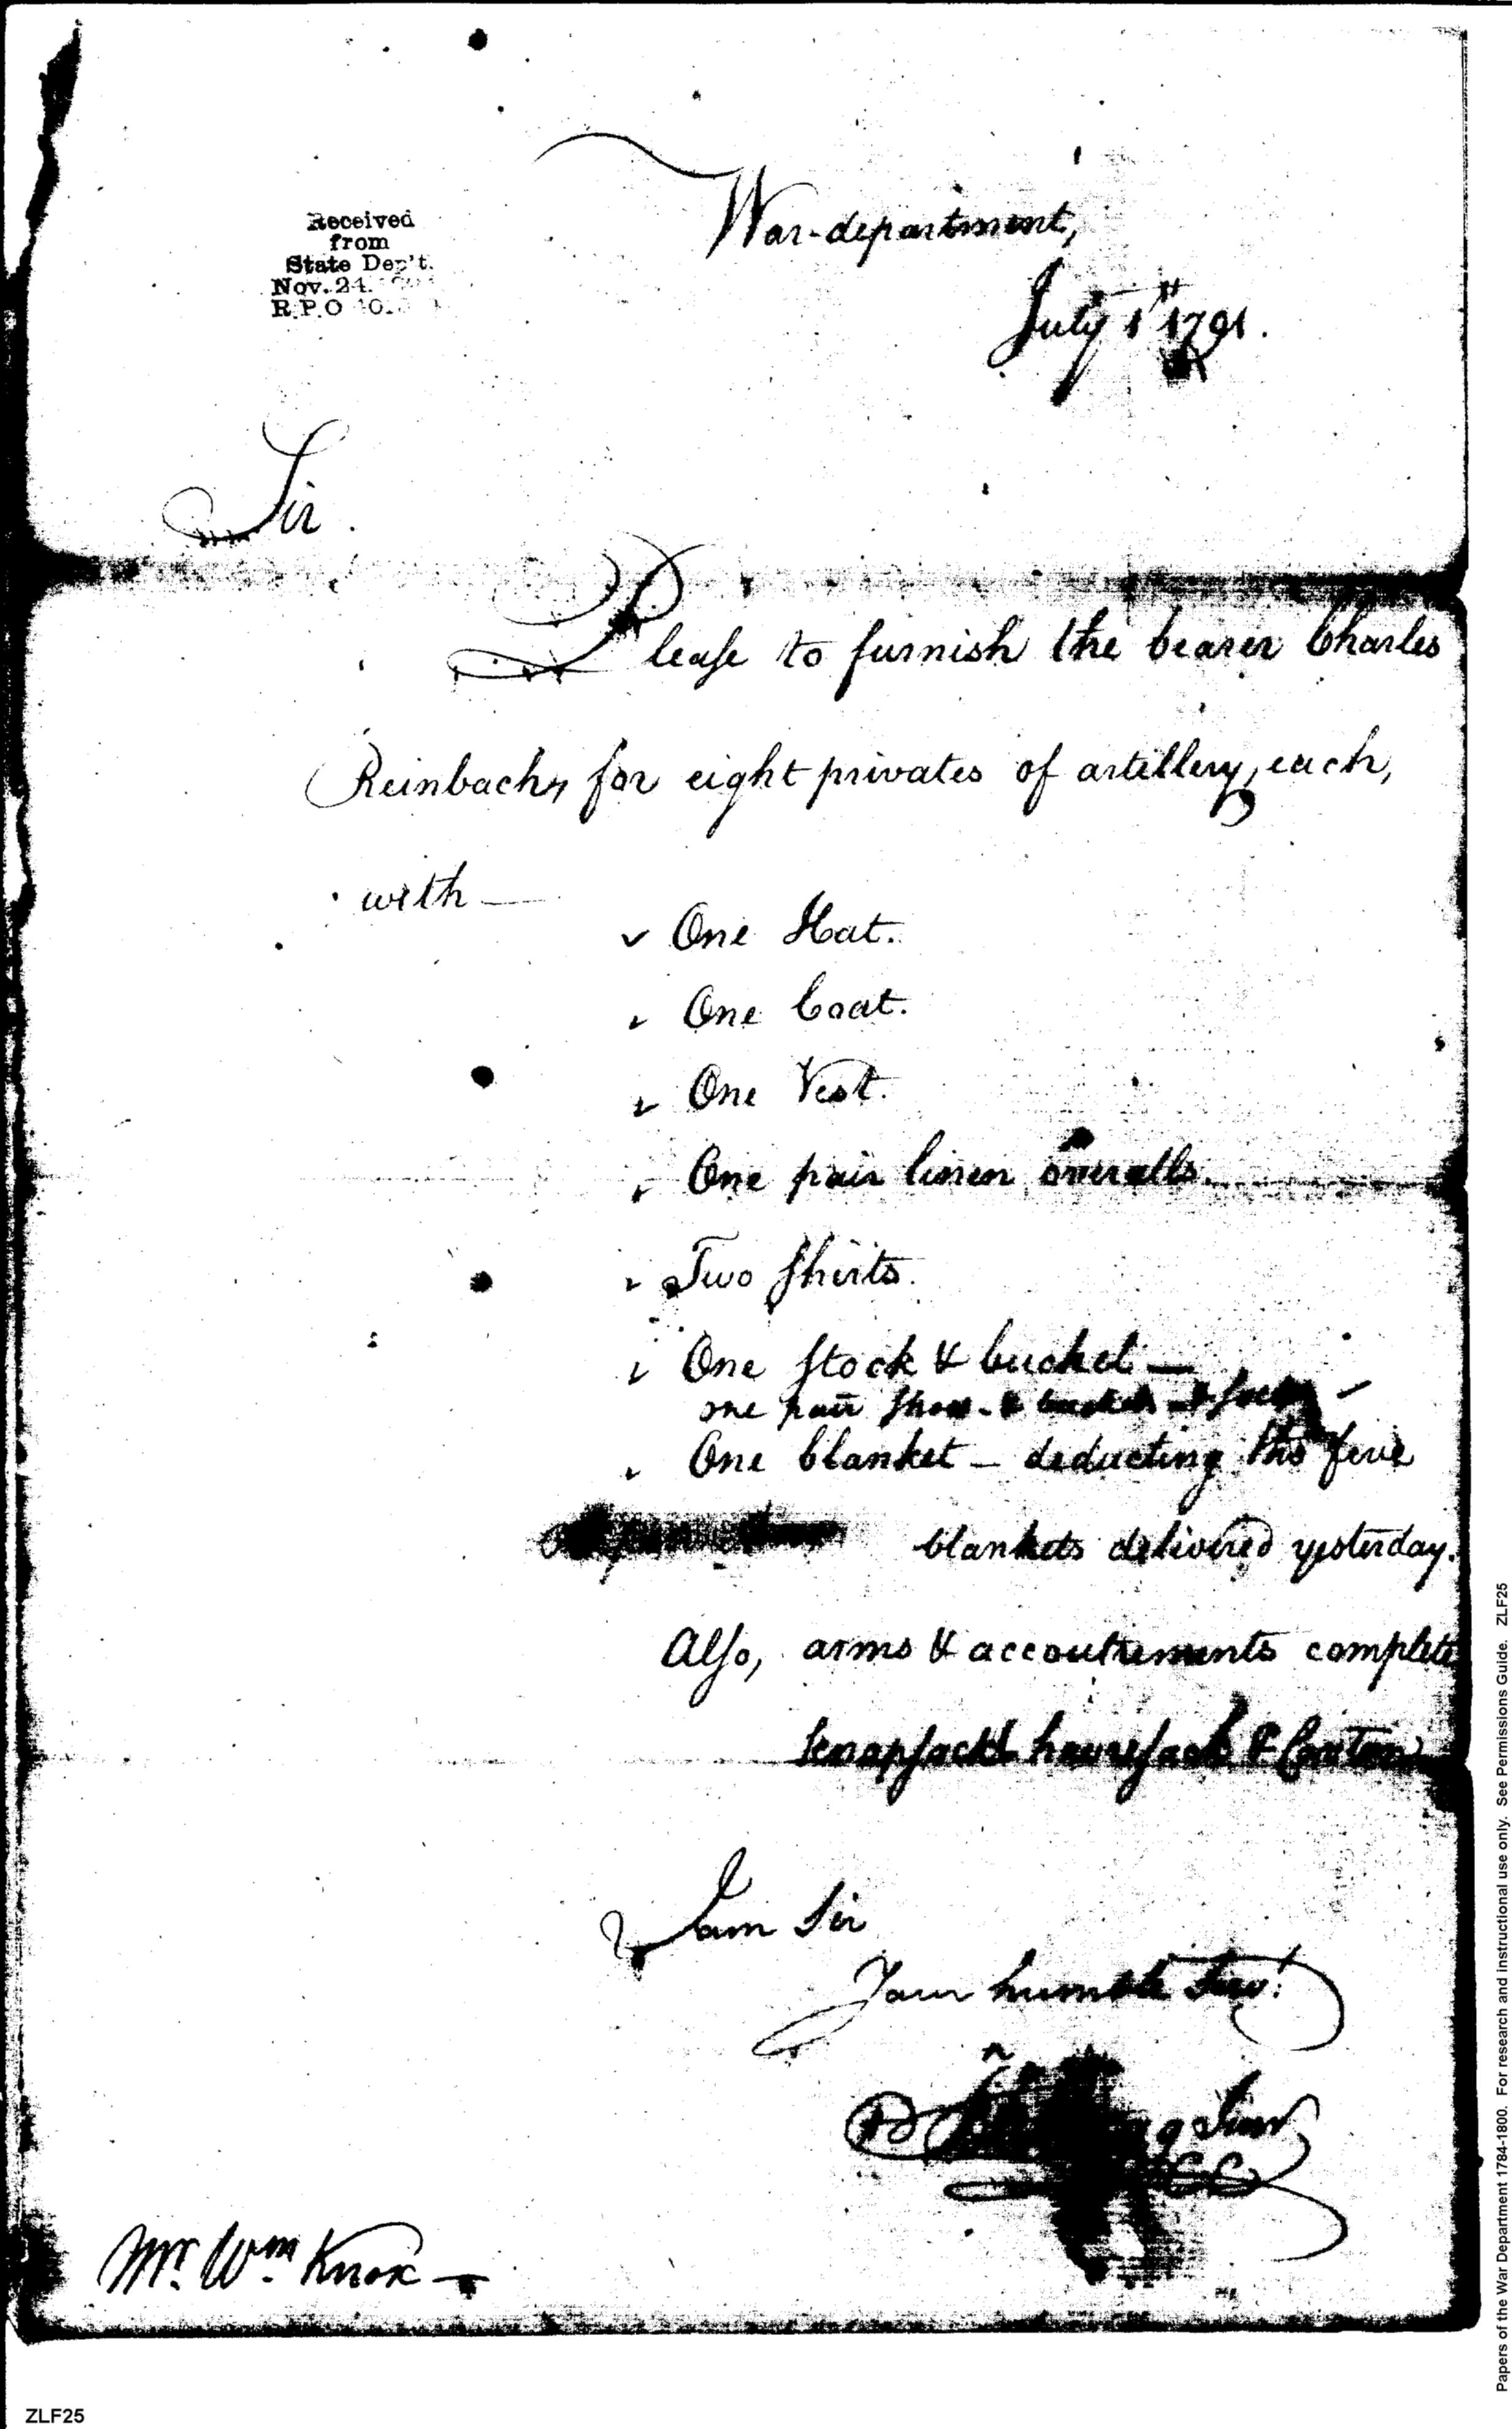 Received
from
State Dep't.
Nov. 24.
R.P.O
War-department,
July 1st 1791.
Sir.
Please to furnish the bearer Charles
Reinbach, for eight privates of artillery, each,
with —
One Hat.
One Coat.
One Vest.
One pair linen overalls.
Two Shirts.
One Stock & buckel —
one pair Shoes - &
One blanket — deducting the five
blankets delivered yesterday.
Also, arms & accoutrements complete
knapsack haversack & Canton
I am Sir
Your humble Servt.
Mr. Wm. Knox —
Papers of the War Department 1784-1800. For research and instructional use only. See Permissions Guide. ZLF25
ZLF25